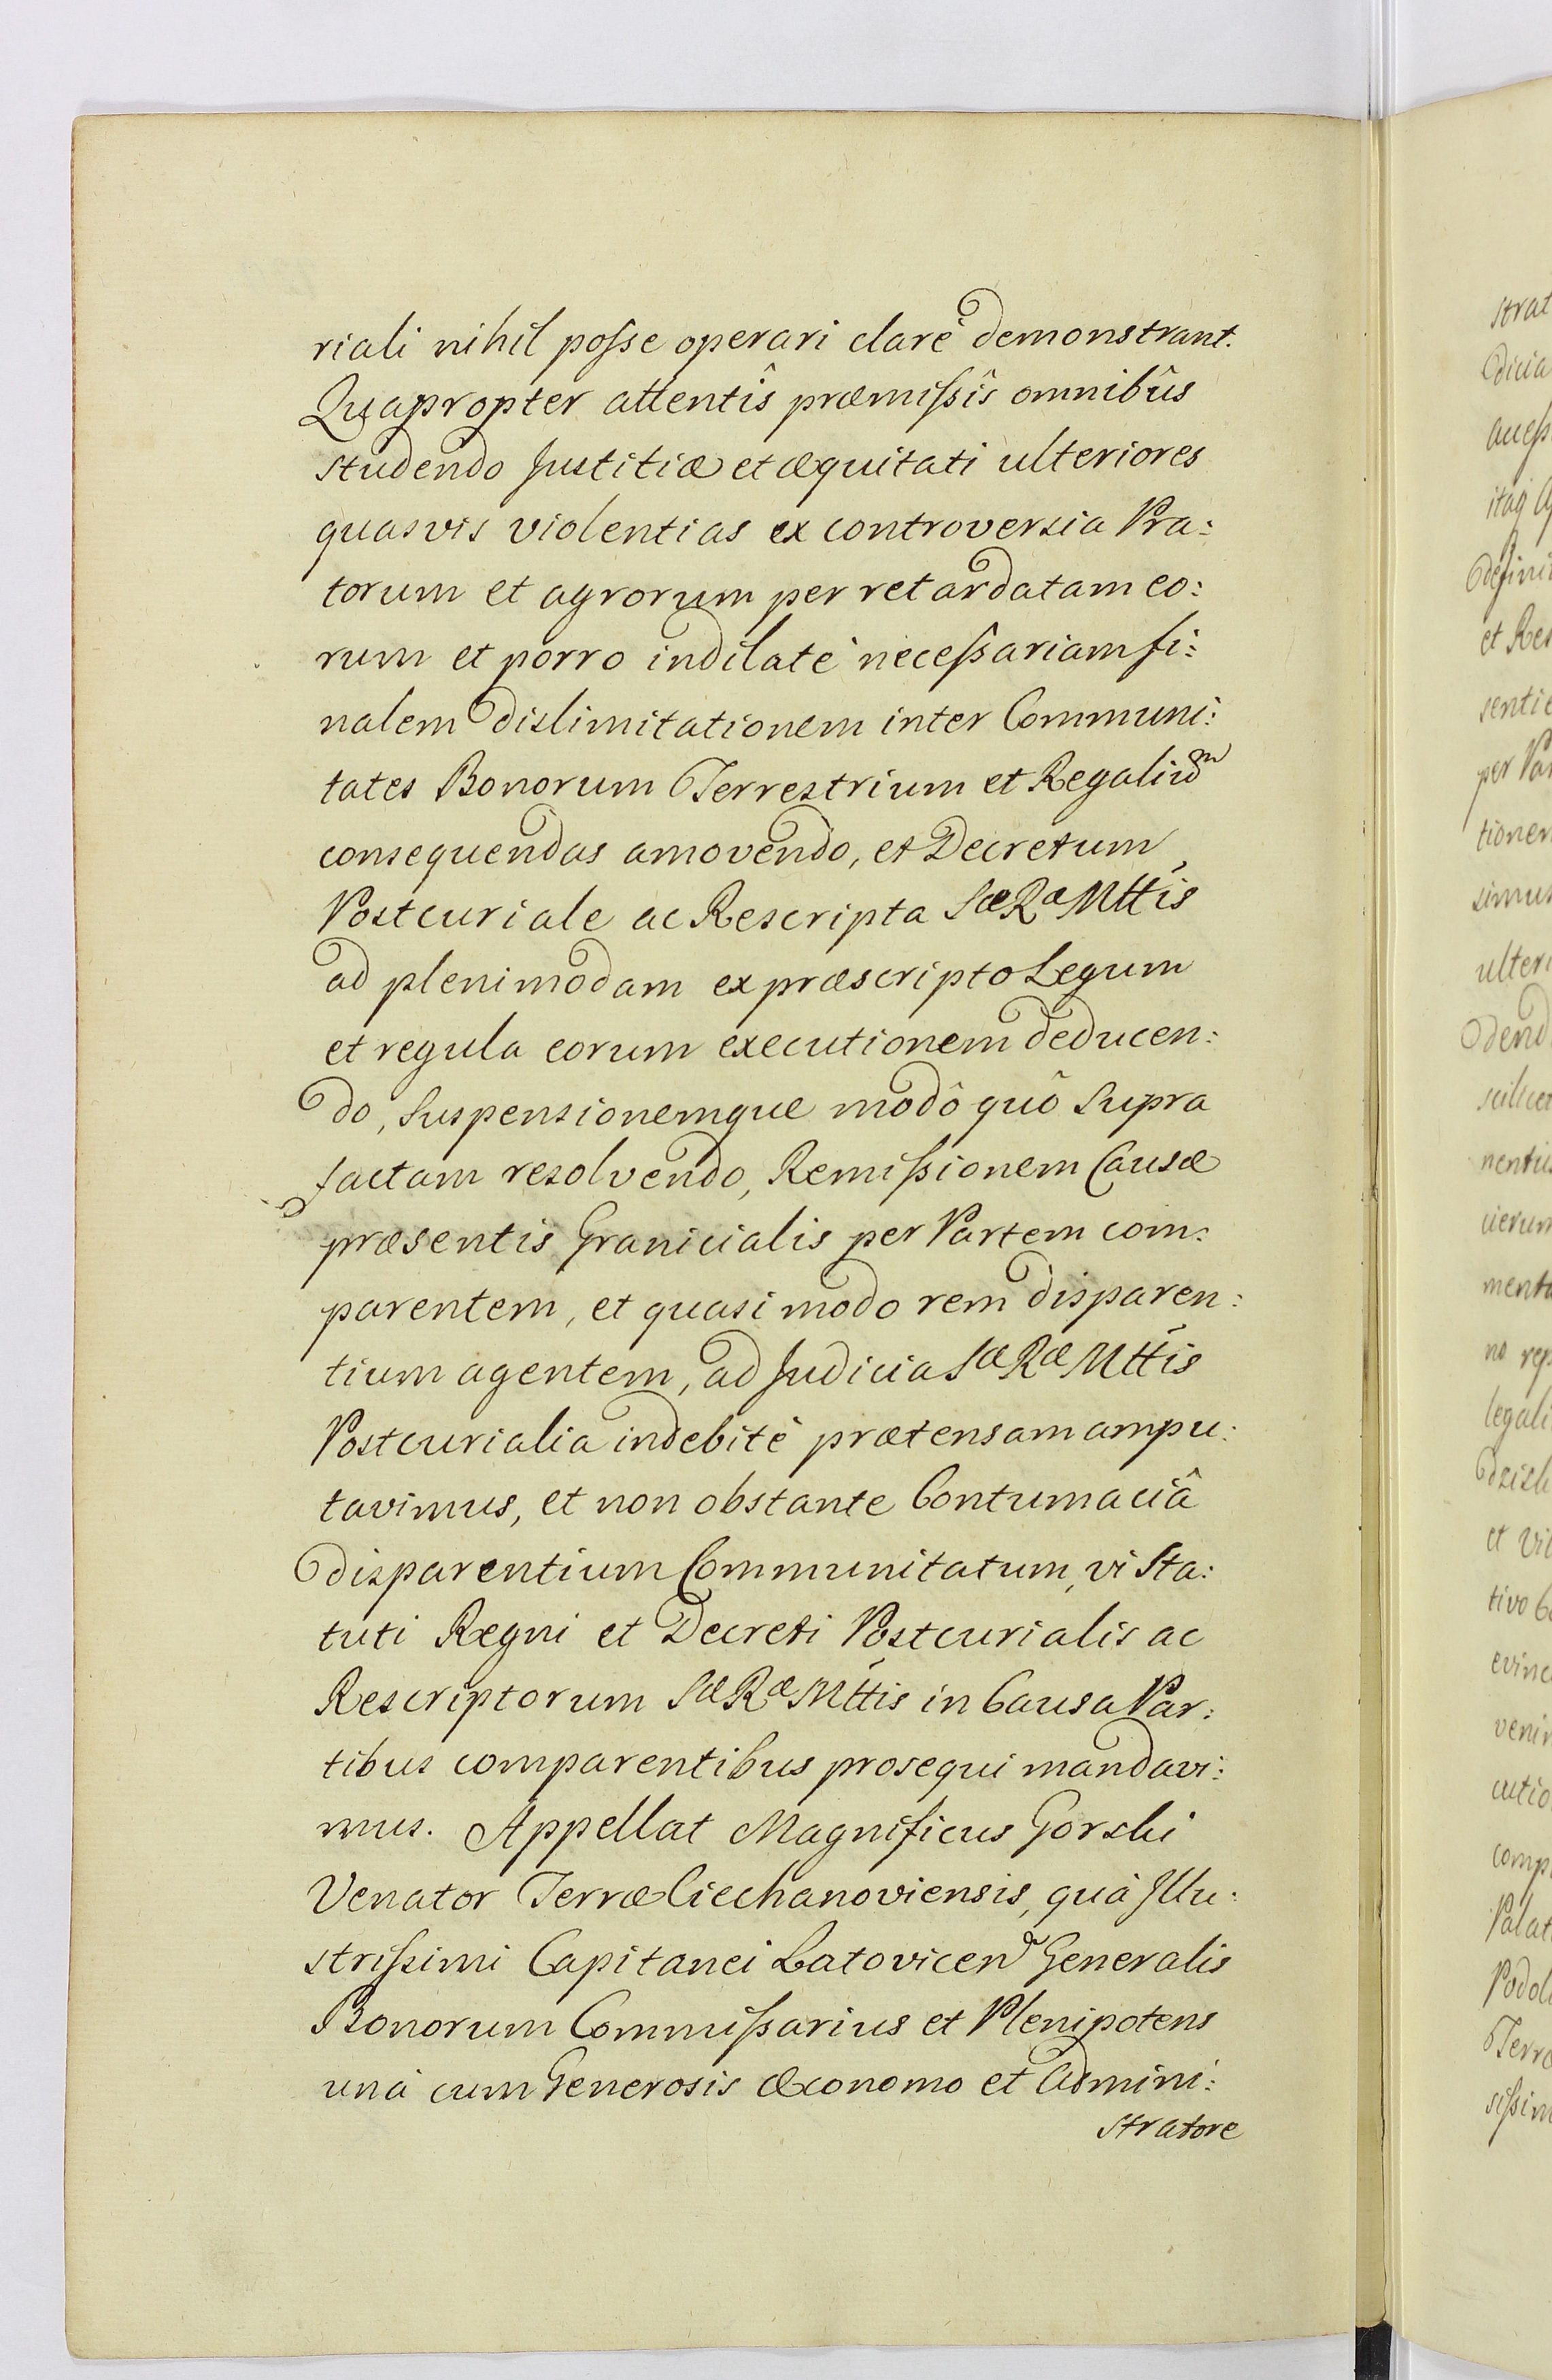 riali nihil posse operari clarè demonstrant.
Quapropter attentîs præmissîs omnibûs
studendo Justitiæ et æquitati ulteriores
quasvis violentias ex controversia Pra:
torum et agrorum per retardatam eo:
rum et porro indilatè necessariam fi:
nalem dislimitationem inter Communi:
tates Bonorum Terrestrium et Regaliũm
consequendas amovendo, et Decretum
Postcuriale ac Rescripta SæRæMttis
ad plenimodam ex præscripto Legum
et regula eorum executionem deducen:
do, Suspensionemque modô quô Supra
factam resolvendo, Remissionem Causæ
præsentis Granicialis per Partem com:
parentem, et quasi modo rem disparen:
tium agentem, ad Judicia SæRæMttis
Postcurialia indebitè prætensam ampu:
tavimus, et non obstante Contumaciâ
disparentium Communitatum, vi Sta:
tuti Regni et Decreti Postcurialis ac
Rescriptorum SæRæMttis in Causa Par:
tibus comparentibus prosequi mandavi:
mus. Appellat Magnificus Gorski
Venator Terræ Ciechanoviensis, quà Illu:
strissimi Capitanei Latovicen Generalis
Bonorum Commissarius et Plenipotens
unà cum Generosis Œconomo et Admini:
stratore
strat
dicia
per Par
ulteri
dend
nentiu
legali
tivo
Palat
Podol